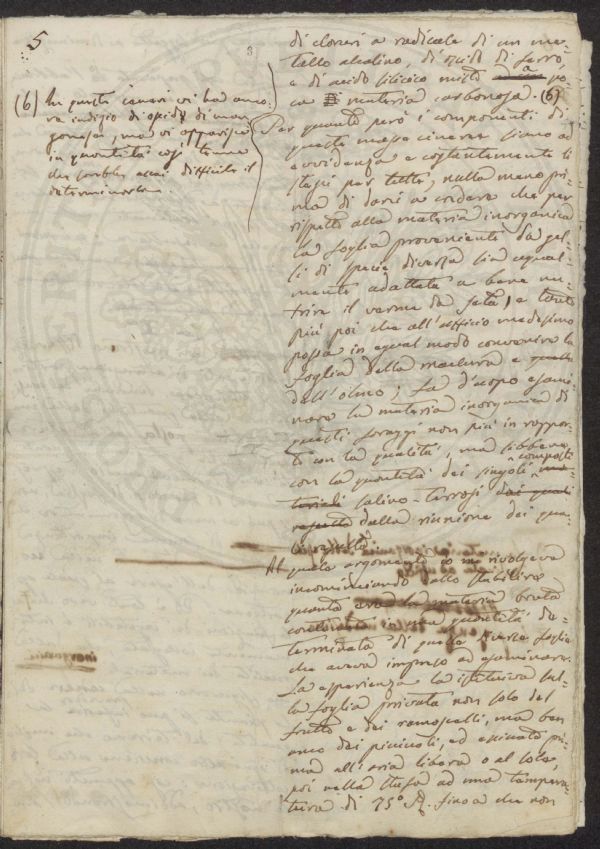 5
3
(6) In queste ceneri vi ha anco-
ra indizio di ossido di man-
ganese, ma vi apparisce
in quantità così tenue
da assai difficile il
determinarla.
di cloruri a radicale di un me-
tallo alcalino, di ossido di ferro,
e di acido silicico misto a po-
ca materia carbonosa. (6)
Per quanto però i componenti di
queste masse cineree siano ad
evidenza e costantemente li
stessi per tutte, nulla meno pri-
ma di darsi a credere che per
rispetto alla materia inorganica
la foglia proveniente da gel-
si di specie diversa sia egual-
mente adattata a bene nu-
trire il verme da seta, e tanto
più poi che all'officio medesimo
possa in egual modo convenire la
foglia della maclura e quella
dell'olmo; fa d'uopo esami-
nare la materia inorganica di
questi foraggi non più in rappor-
to con la qualità, ma sibbene
con la quantità dei singoli composti
teriali salino-terrosi dai quali
risulta dalla riunione dei qua-
li
Al quale argomento io mi rivolgeva
incominciando dallo stabilire
quanta era la materia bruta
in una quantità de-
terminata di quelle diverse foglie
che aveva impreso ad esaminare.
La esperienza la istituiva sul-
la foglia privata non solo del
frutto e dei ramoscelli, ma ben
anco dei picciuoli, ed essicata pri-
ma all'aria libera o al sole,
poi nella stufa ad una tempera-
tura di 75° R. fino a che non